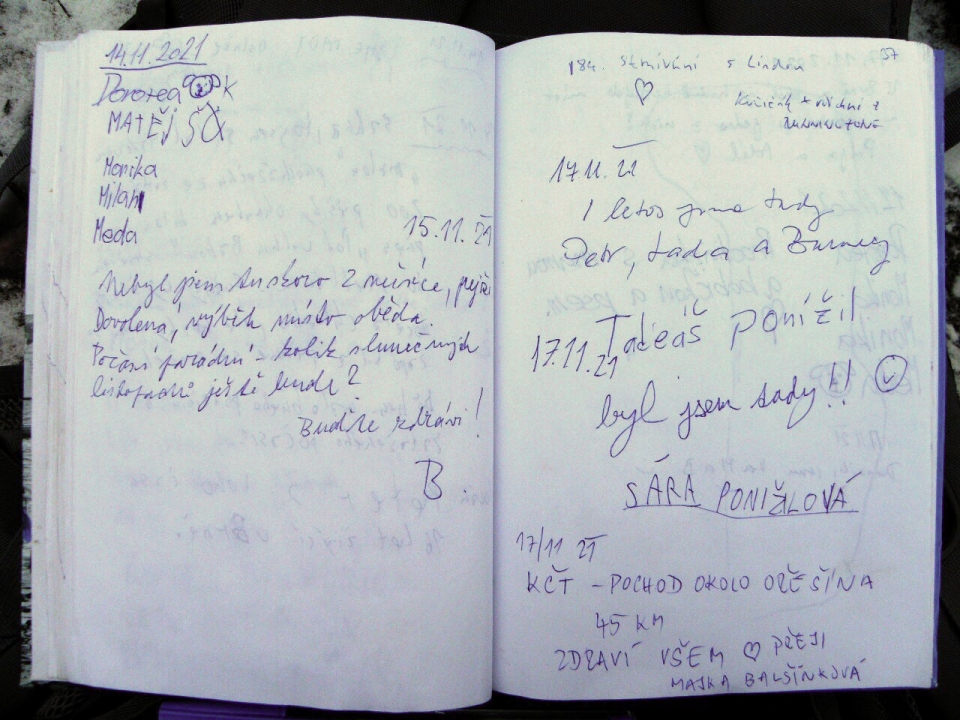 14.11.2021
Dorotea K
MATĚJ ŠŮ
Monika
Milan
Meda
15.11.21
Nebyl jsem tu skoro 2 měsíce,
Dovolená, výběh místo oběda.
Počasí parádní - kolik slunečných
listopadů ještě bude?
Buďte zdrávi!
B.
184. Stmívání s Lindou
37
♡
Kočičák + všichni z
17.11.21
I letos jsme tady
Petr, Lada a Barney
Tadeáš Ponížil
17.11.21
byl jsem tady!!
SÁRA PONÍŽILOVÁ
17/11 21
KČT - POCHOD OKOLO OŘEŠÍNA
45 KM
ZDRAVÍ VŠEM ♡ PŘEJI
MAJKA BALŠÍNKOVÁ